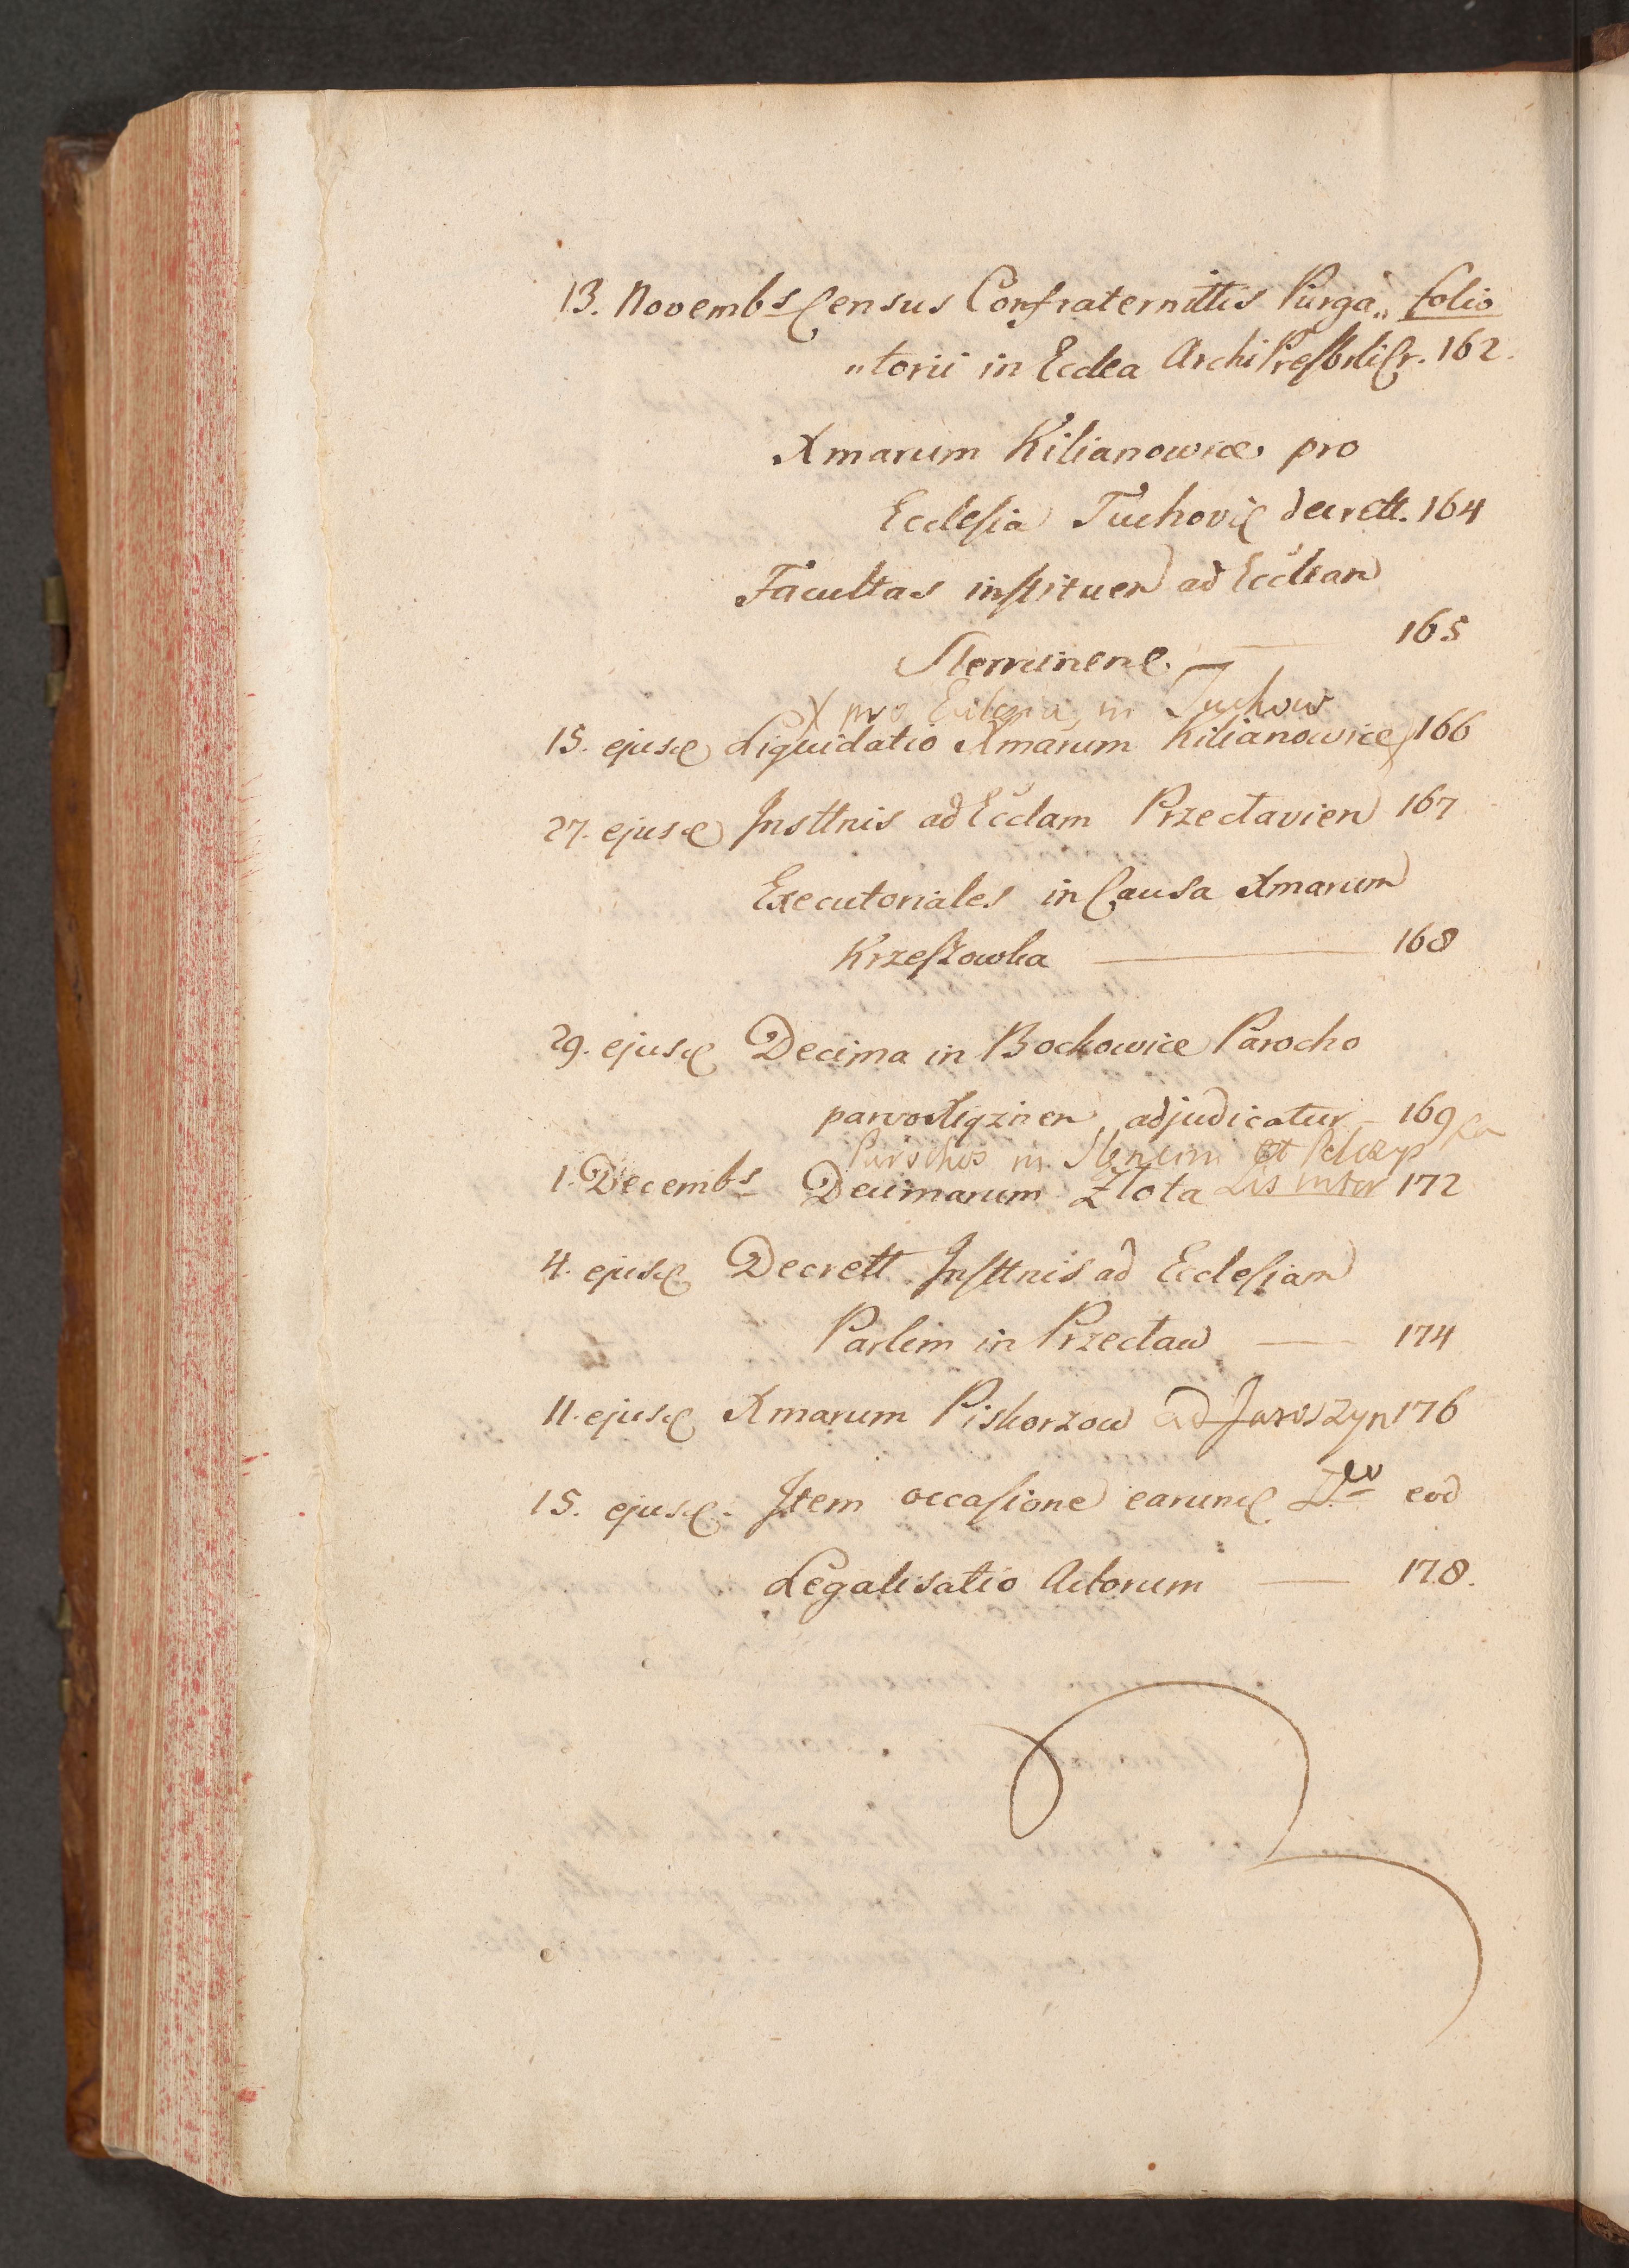 13. Novembs Census Confraternittis Purga„ folio
„torii in Ecclea ArchiPresbrli Cr. 162.
Xmarum Kilianowice pro
Ecclesia Tuchovie decrett. 164
Facultas instituen ad Ecclean
165
X pro Ecclesia in Tuchow
15. ejusd Liquidatio Xmarum Kilianowice X 166
27. ejusd Insttnis ad Ecclam Przeclavien 167
Executoriales in Causa Xmarum
Krzeszowka — 168
29. ejusd Decima in Bockowice Parocho
adjudicatur — 169
in et
1. Decembs Decimarum Zlota Lis inter 172
4. ejusd Decrett Insttnis ad Ecclesiam
Parlem in Przecław — 174
11. ejusd Xmarum Piskorzow ad Jaroszyn 176
15. ejusd. Item occasione earund eod
Legalisatio Actorum — 178.